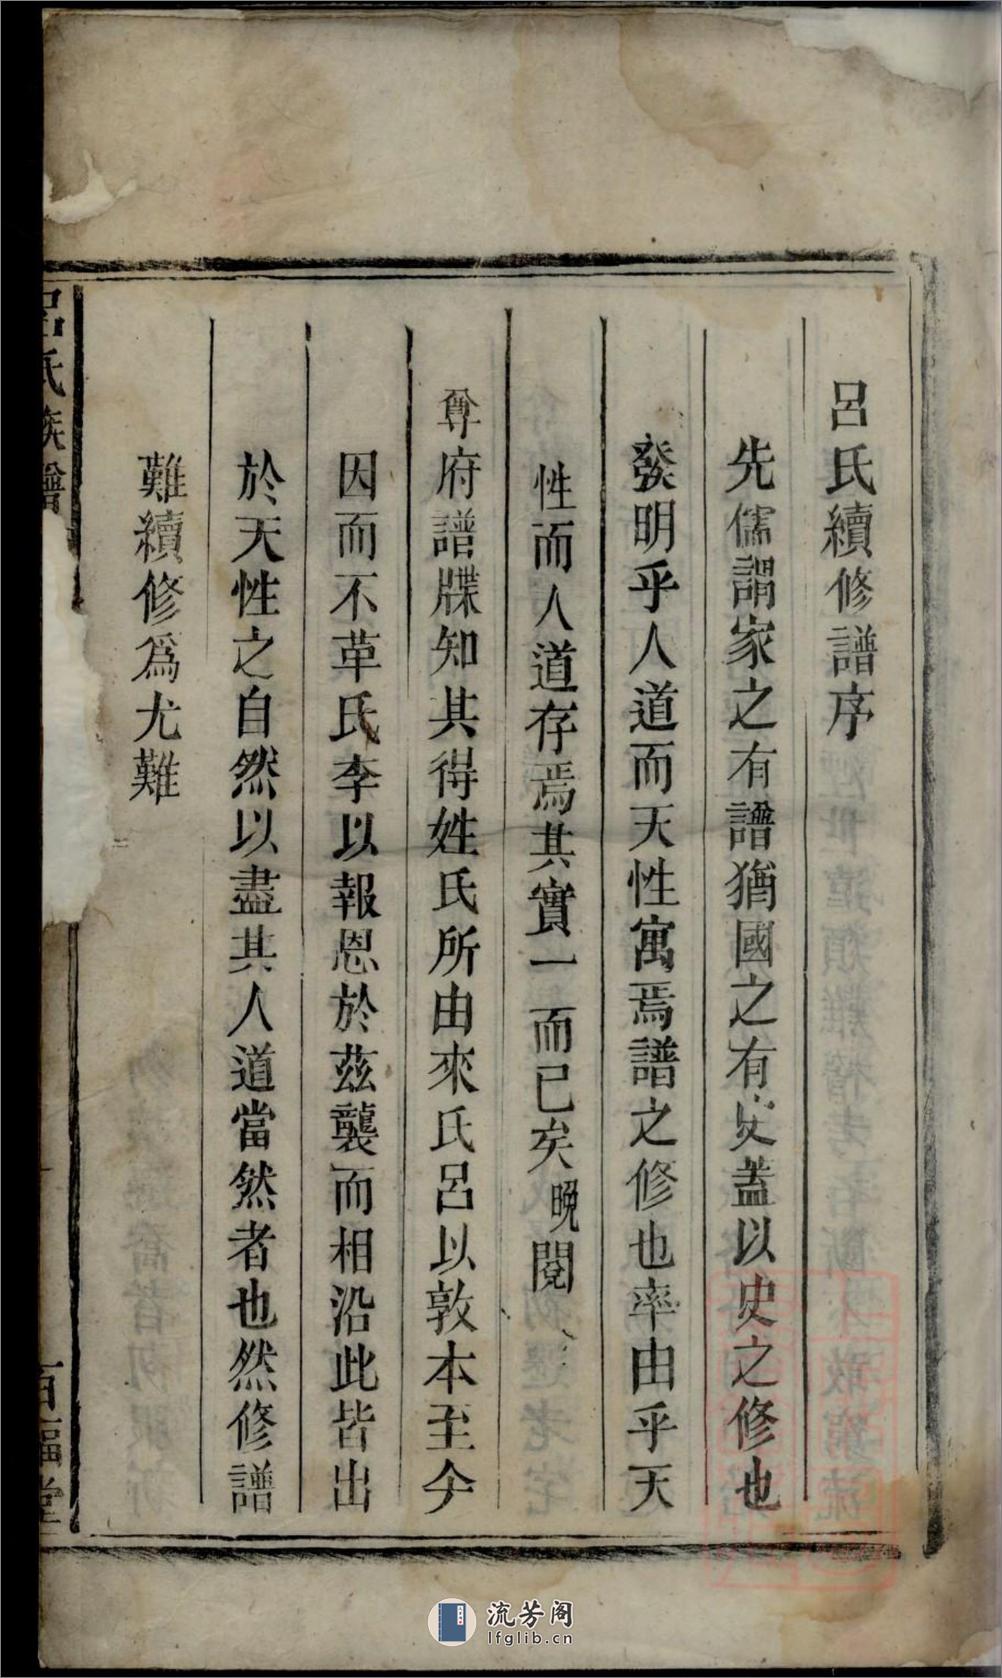 呂氏續修譜序
先儒謂家之有譜猶國之有史蓋以史之修也
發明乎人道而天性寓焉譜之修也率由乎天
性而人道存焉其實一而已矣晚閱
尊府譜牒知其得姓氏所由來氏呂以敦本至今
因而不革氏李以報恩於茲襲而相沿此皆出
於天性之自然以盡其人道當然者也然修譜
難續修爲尤難
呂氏族譜
百福堂
流芳阁
lfglib.cn